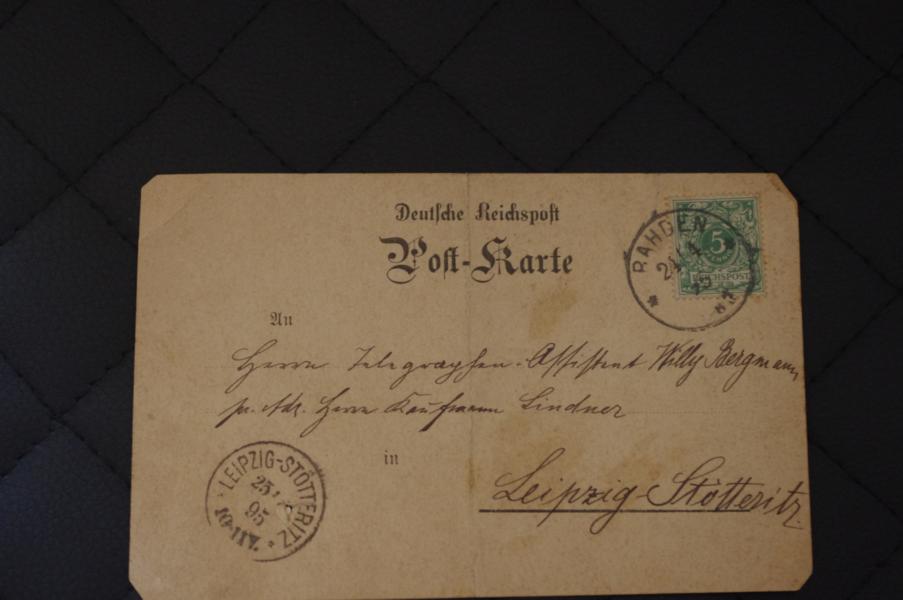 Deutsche Reichspost
Post-Karte
RAHDEN
24 4
5
REICHSPOST
An
Herrn Telegraphen-Assistent Willy Bergmann
p. Adr. Herrn Kaufmann Lindner
in
Leipzig-Stötteritz.
LEIPZIG-STÖTTERITZ
25
95
10-11V.